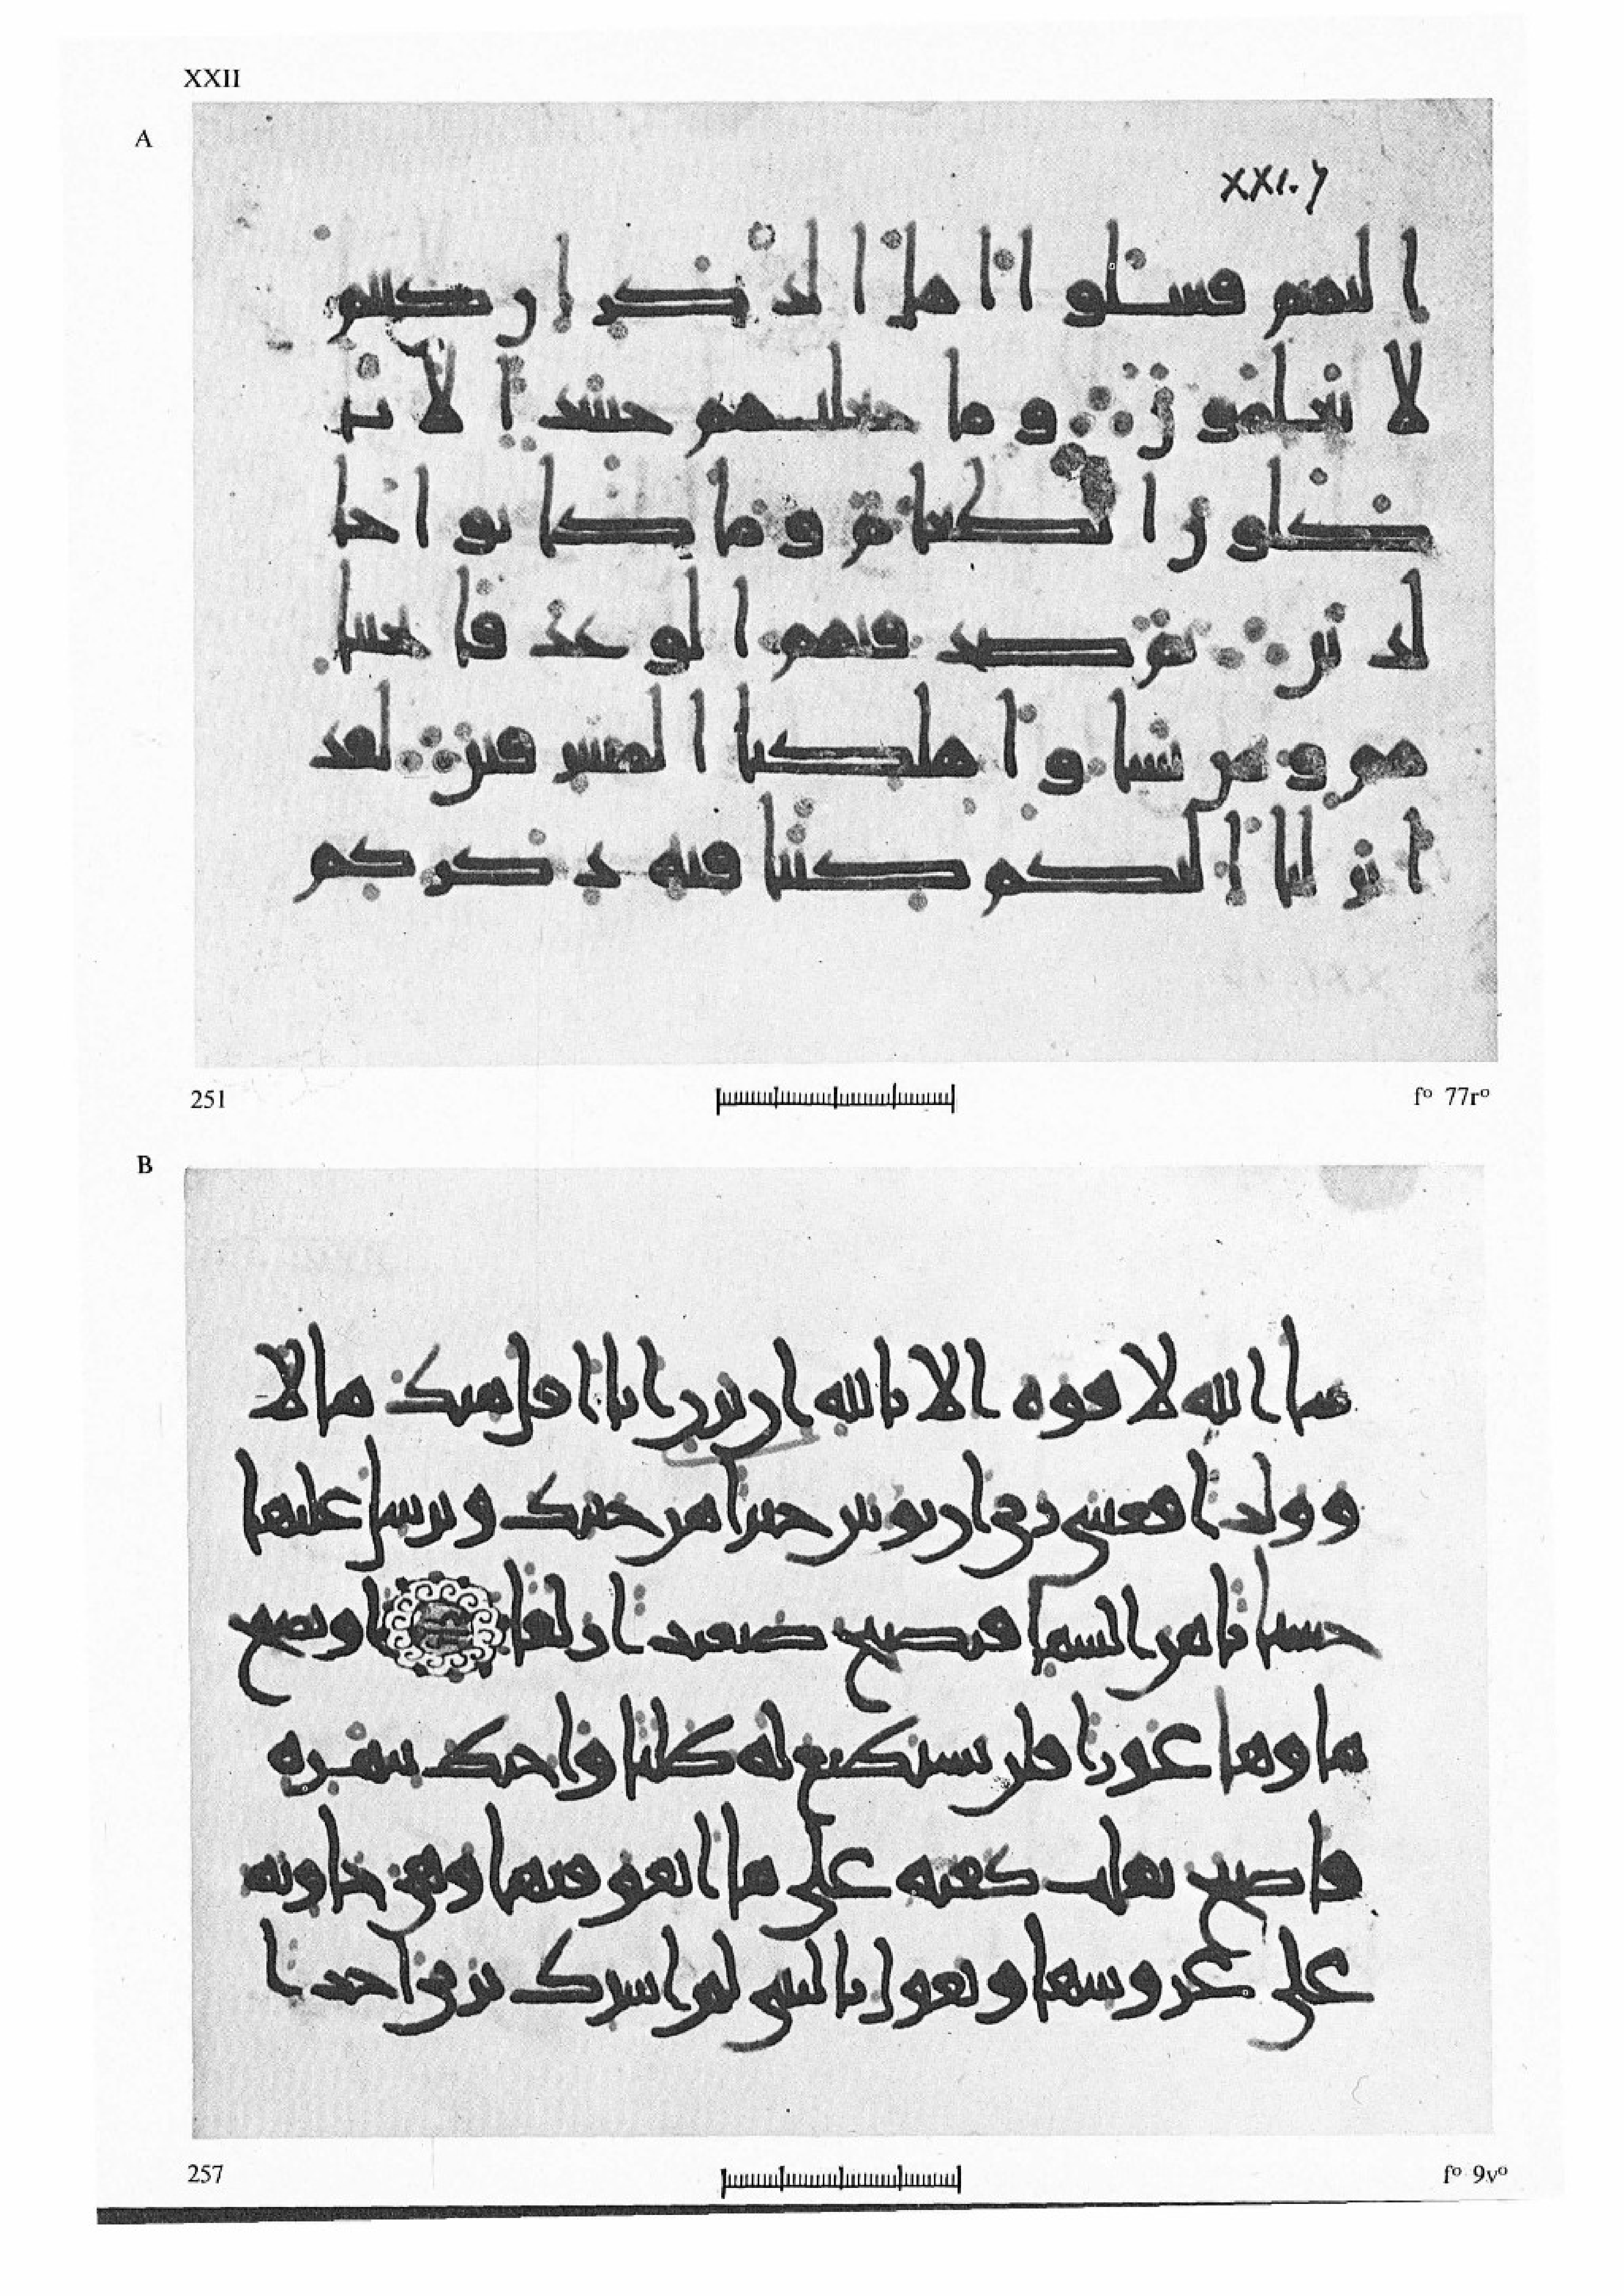 XXII
A
XXI.7
ا ليهم فسلوا ا هل ا لذ كر ا ن كنتم
لا تعلمو ن و ما جعلنهم جسد ا لا يا
كلو ن ا لطعا م و ما كا نوا خا
لد ين ثم صد قنهم ا لو عد فا نجينا
هم و من نشا و ا هلكنا ا لمسر فين لقد
ا نز لنا ا ليكم كتبا فيه ذ كر كم
251
fº 77rº
B
شا ا لله لا قوه ا لا با لله ا ن تر ن ا نا ا قل منك ما لا
و و لد ا فعسى ر بى ا ن يو تين خير ا من جنتك و ير سل عليها
حسبا نا من ا لسما فتصبح صعيد ا ز لقا ا و يصبح
ما و ها غو ر ا فلن تستطيع له طلبا و ا حيط بثمر ه
فا صبح يقلب كفيه على ما ا نفق فيها و هى خا و يه
على عر و شها و يقو ل يا ليتنى لم ا شر ك بر بى ا حد ا
257
fº 9vº